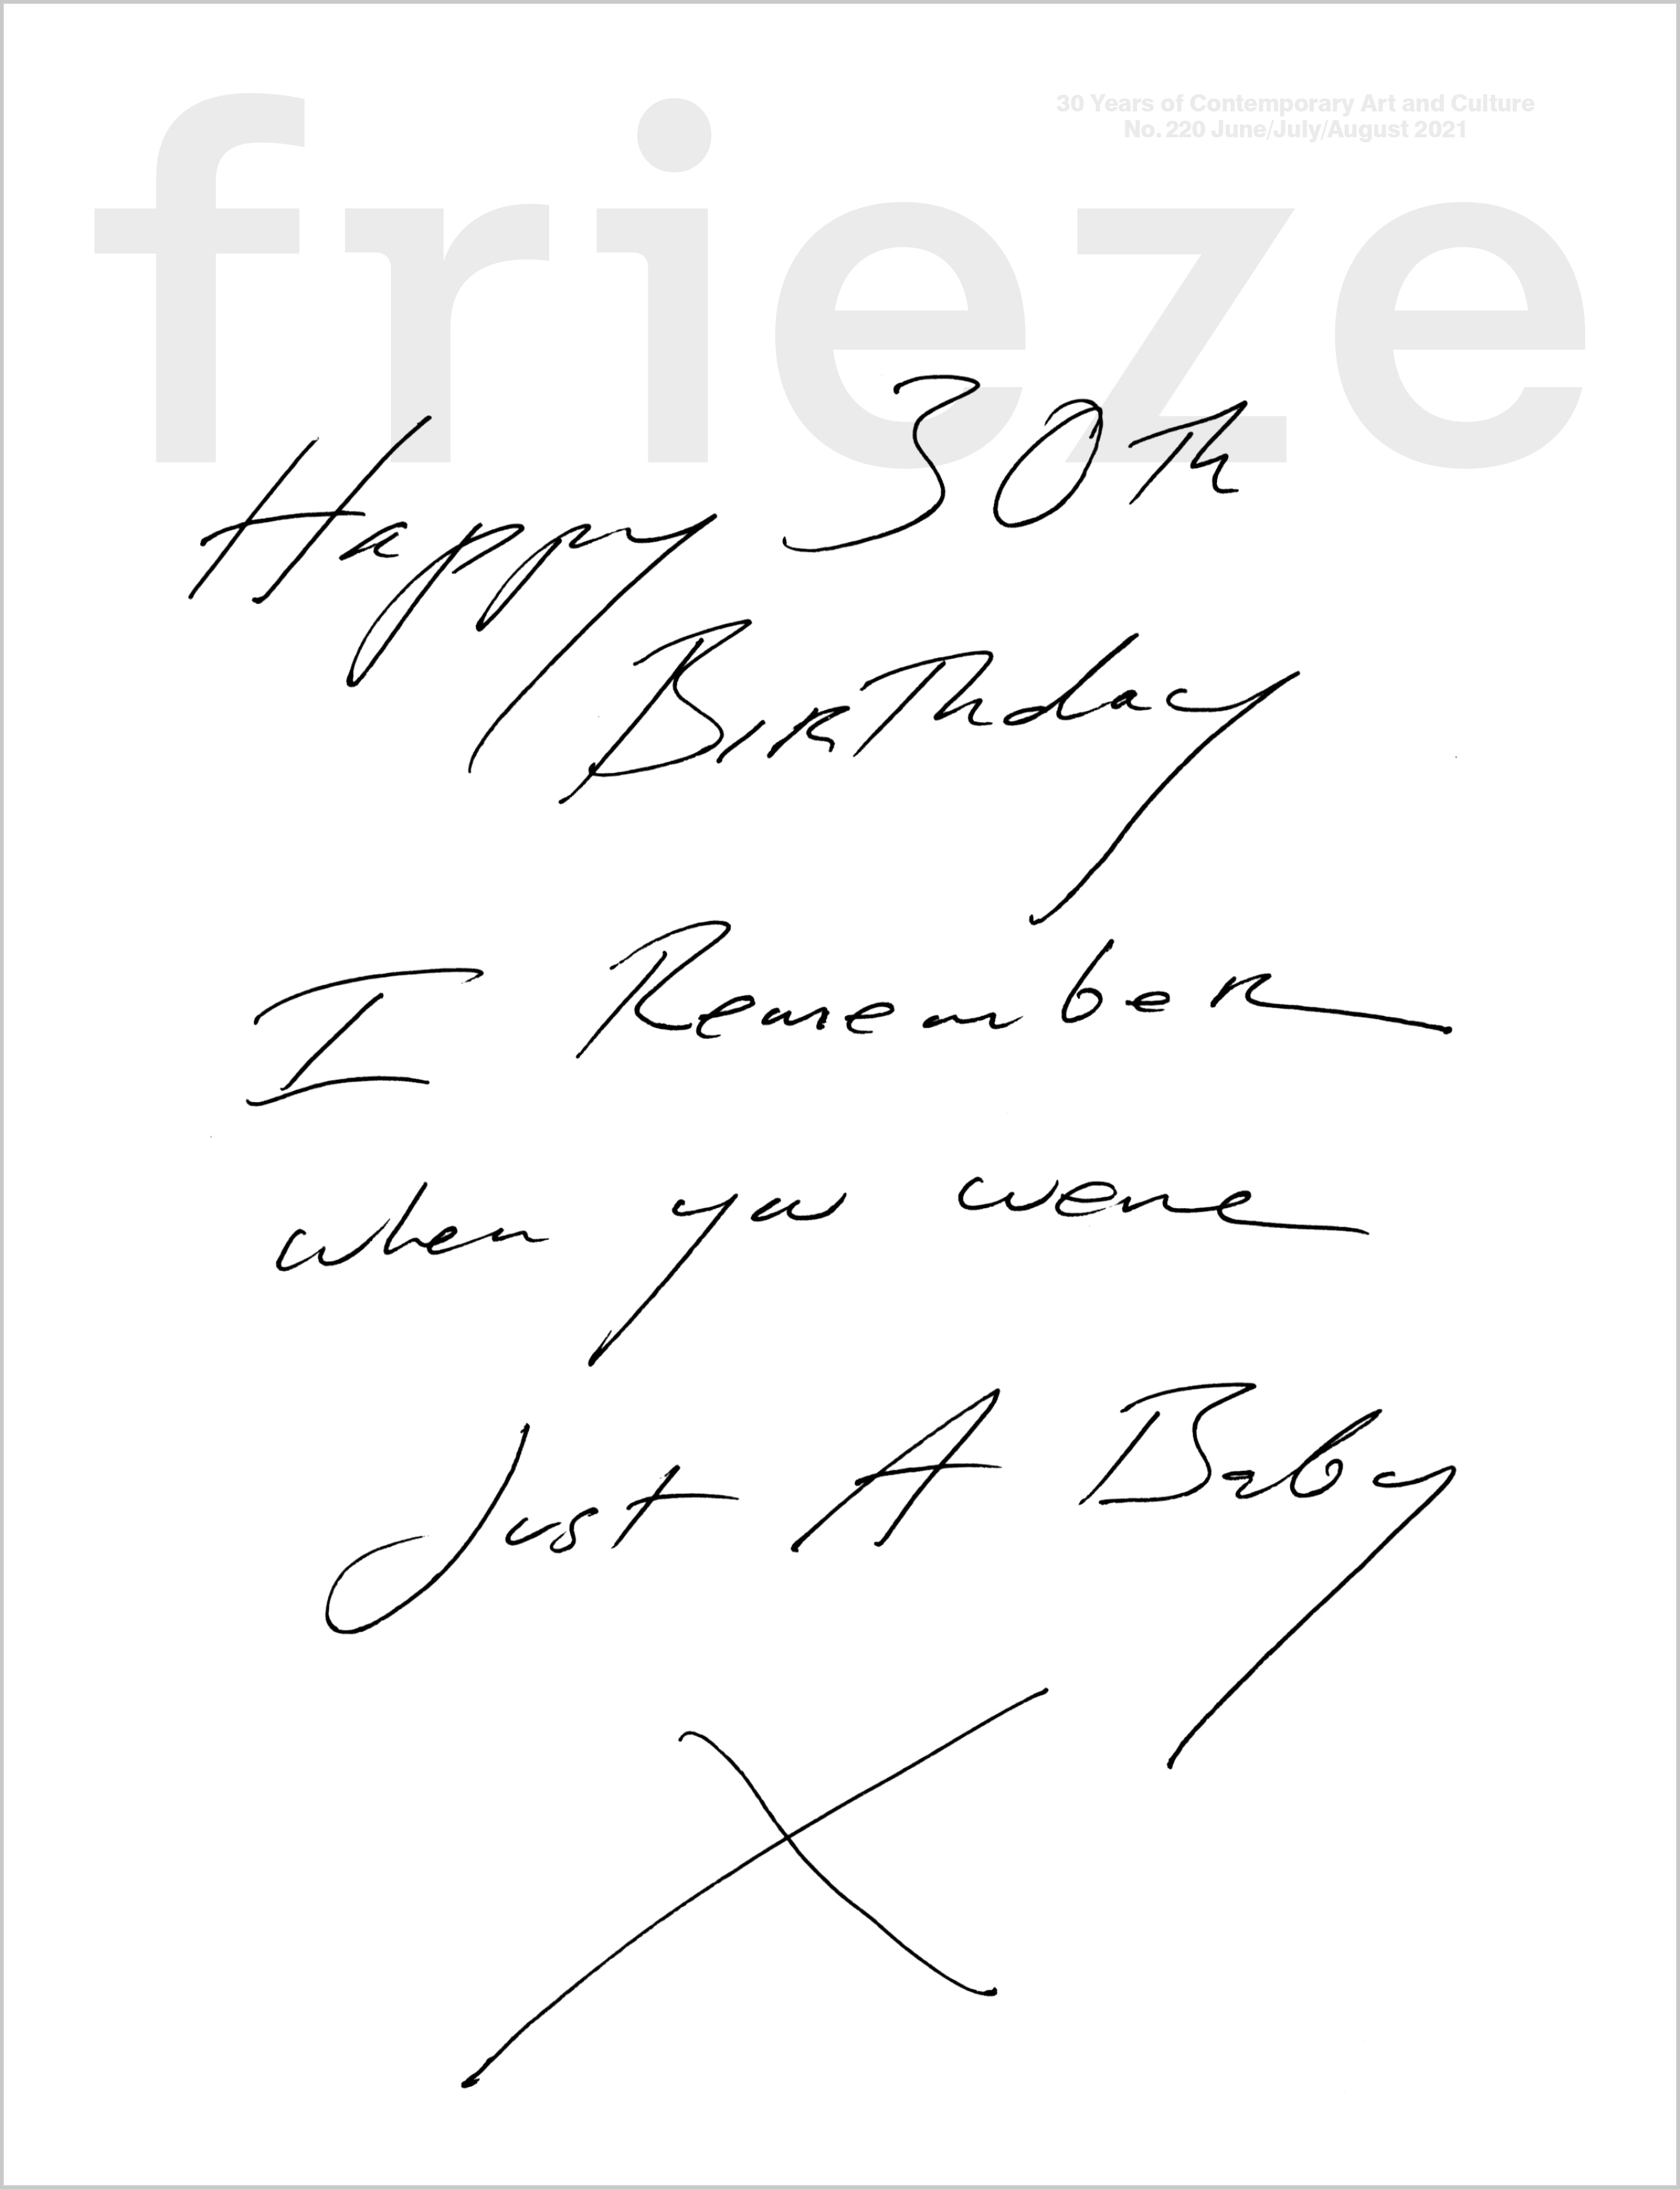 frieze
30 Years of Contemporary Art and Culture
No. 220 June/July/August 2021
Happy 30Th
Birthday
I Remember
when you were
Just A Baby
X